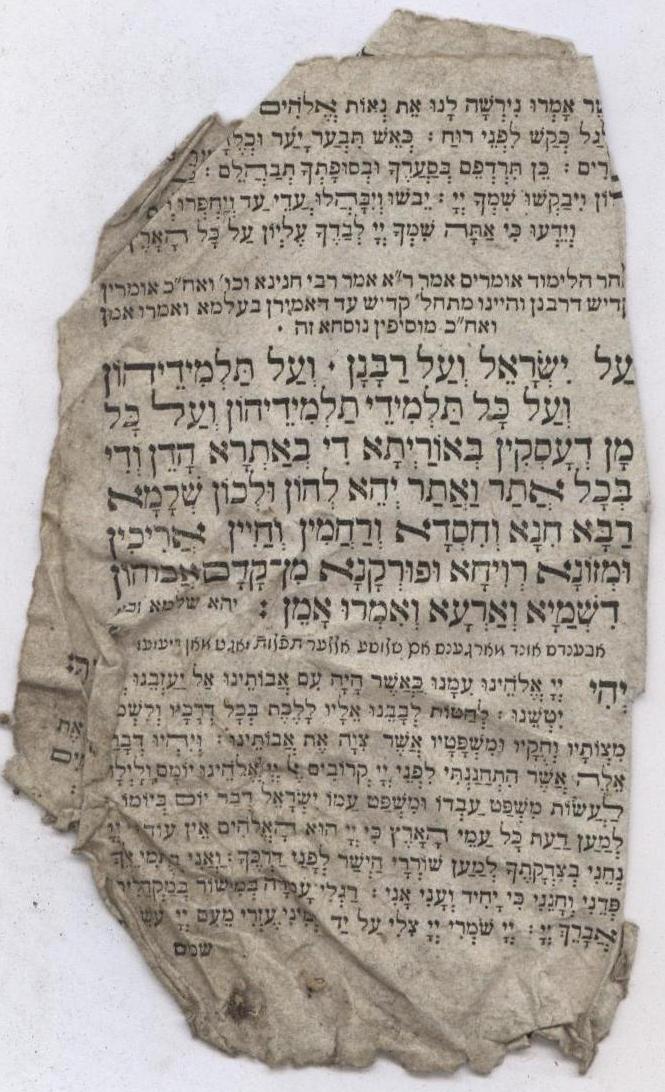 אָמְרוּ נִירְשָׁה לָנוּ אֵת נְאוֹת אֱלֹהִים
כְּקַשׁ לִפְנֵי רוּחַ : כְּאֵשׁ תִּבְעַר יָעַר
כֵּן תִּרְדְּפֵם בְּסַעֲרֶךָ וּבְסוּפָתְךָ תְבַהֲלֵם :
וִיבַקְשׁוּ שִׁמְךָ יְיָ : יֵבשׁוּ וְיִבָּהֲלוּ עֲדֵי עַד וְיַחְפְּרוּ
וְיֵדְעוּ כִּי אַתָּה שִׁמְךָ יְיָ לְבַדֶּךָ עֶלְיוֹן עַל כָּל הָאָרֶץ
הלימוד אומרים אמר ר״א אמר רבי חנינא וכו׳ ואח״כ אומרין
קדיש דרבנן והיינו מתחל׳ קדיש עד דאמירן בעלמא ואמרו אמן
ואח״כ מוסיפין נוסחא זה ·
עַל יִשְׂרָאֵל וְעַל רַבָּנָן · וְעַל תַּלְמִידֵיהוֹן
וְעַל כָּל תַּלְמִידֵי תַלְמִידֵיהוֹן וְעַל כָּל
מָן דְעָסְקִין בְּאוֹרַיְתָא דִי בְאַתְרָא הָדֵן וְדִי
בְּכָל אֲתַר וַאֲתַר יְהֵא לְהוֹן וּלְכוֹן שְׁלָמָא
רַבָּא חִנָּא וְחִסְדָא וְרַחֲמִין וְחַיִין אֲרִיכִין
וּמְזוֹנָא רְוִיחָא וּפוּרְקָנָא מִן־קָדָם אֲבוּהוֹן
דִבִשְׁמַיָא וְאַרְעָא וְאִמְרוּ אָמֵן : יהא שלמא וכו׳
אבענדס אונד מארגענס
יְהִי יְיָ אֱלֹהֵינוּ עִמָּנוּ כַּאֲשֶׁר הָיָה עִם אֲבוֹתֵינוּ אַל יַעַזְבֵנוּ
יִטְּשֵׁנוּ : לְהַטּוֹת לְבָבֵנוּ אֵלָיו לָלֶכֶת בְּכָל דְּרָכָיו
מִצְוֹתָיו וְחֻקָּיו וּמִשְׁפָּטָיו אֲשֶׁר צִוָּה אֶת אֲבוֹתֵינוּ : וְיִהְיוּ דְבָרַי
אֵלֶּה אֲשֶׁר הִתְחַנַּנְתִּי לִפְנֵי יְיָ קְרוֹבִים אֶל יְיָ אֱלֹהֵינוּ יוֹמָם וָלַיְלָה
לַעֲשׂוֹת מִשְׁפַּט עַבְדּוֹ וּמִשְׁפַּט עַמּוֹ יִשְׂרָאֵל דְּבַר יוֹם בְּיוֹמוֹ
לְמַעַן דַּעַת כָּל עַמֵּי הָאָרֶץ כִּי יְיָ הוּא הָאֱלֹהִים אֵין עוֹד
נְחֵנִי בְצִדְקָתֶךָ לְמַעַן שׁוֹרְרָי הַיְשַׁר לְפָנַי דַּרְכֶּךָ : וַאֲנִי
פְּדֵנִי וְחָנֵּנִי כִּי יָחִיד וְעָנִי אָנִי : רַגְלִי עָמְדָה בְמִישׁוֹר
אֲבָרֵךְ יְיָ : יְיָ שֹׁמְרִי יְיָ צִלִּי עַל יַד יְמִינִי עֶזְרִי מֵעִם יְיָ
שמם
אֶת